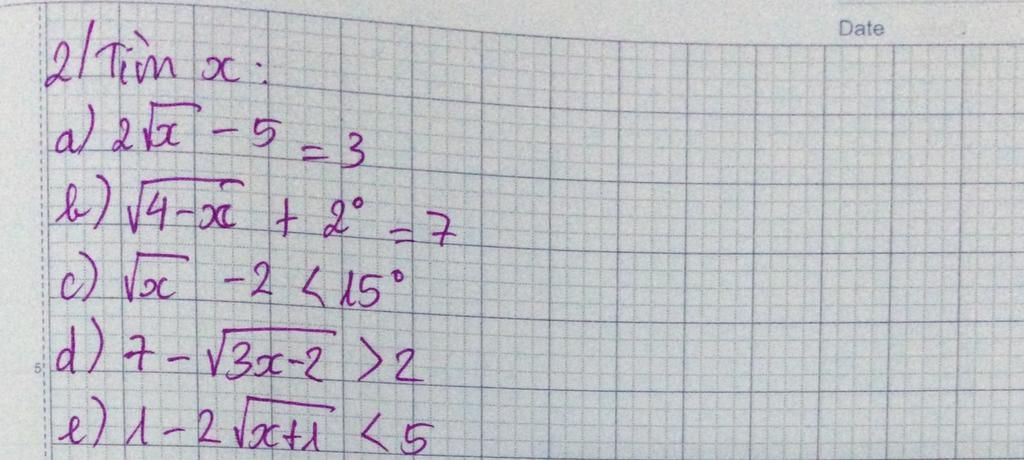 Date
2/ Tìm x:
a) 2√x - 5 = 3
b) √(4-x) + 2° = 7
c) √x - 2 < 15°
d) 7 - √(3x-2) > 2
5
e) 1 - 2√(x+1) < 5